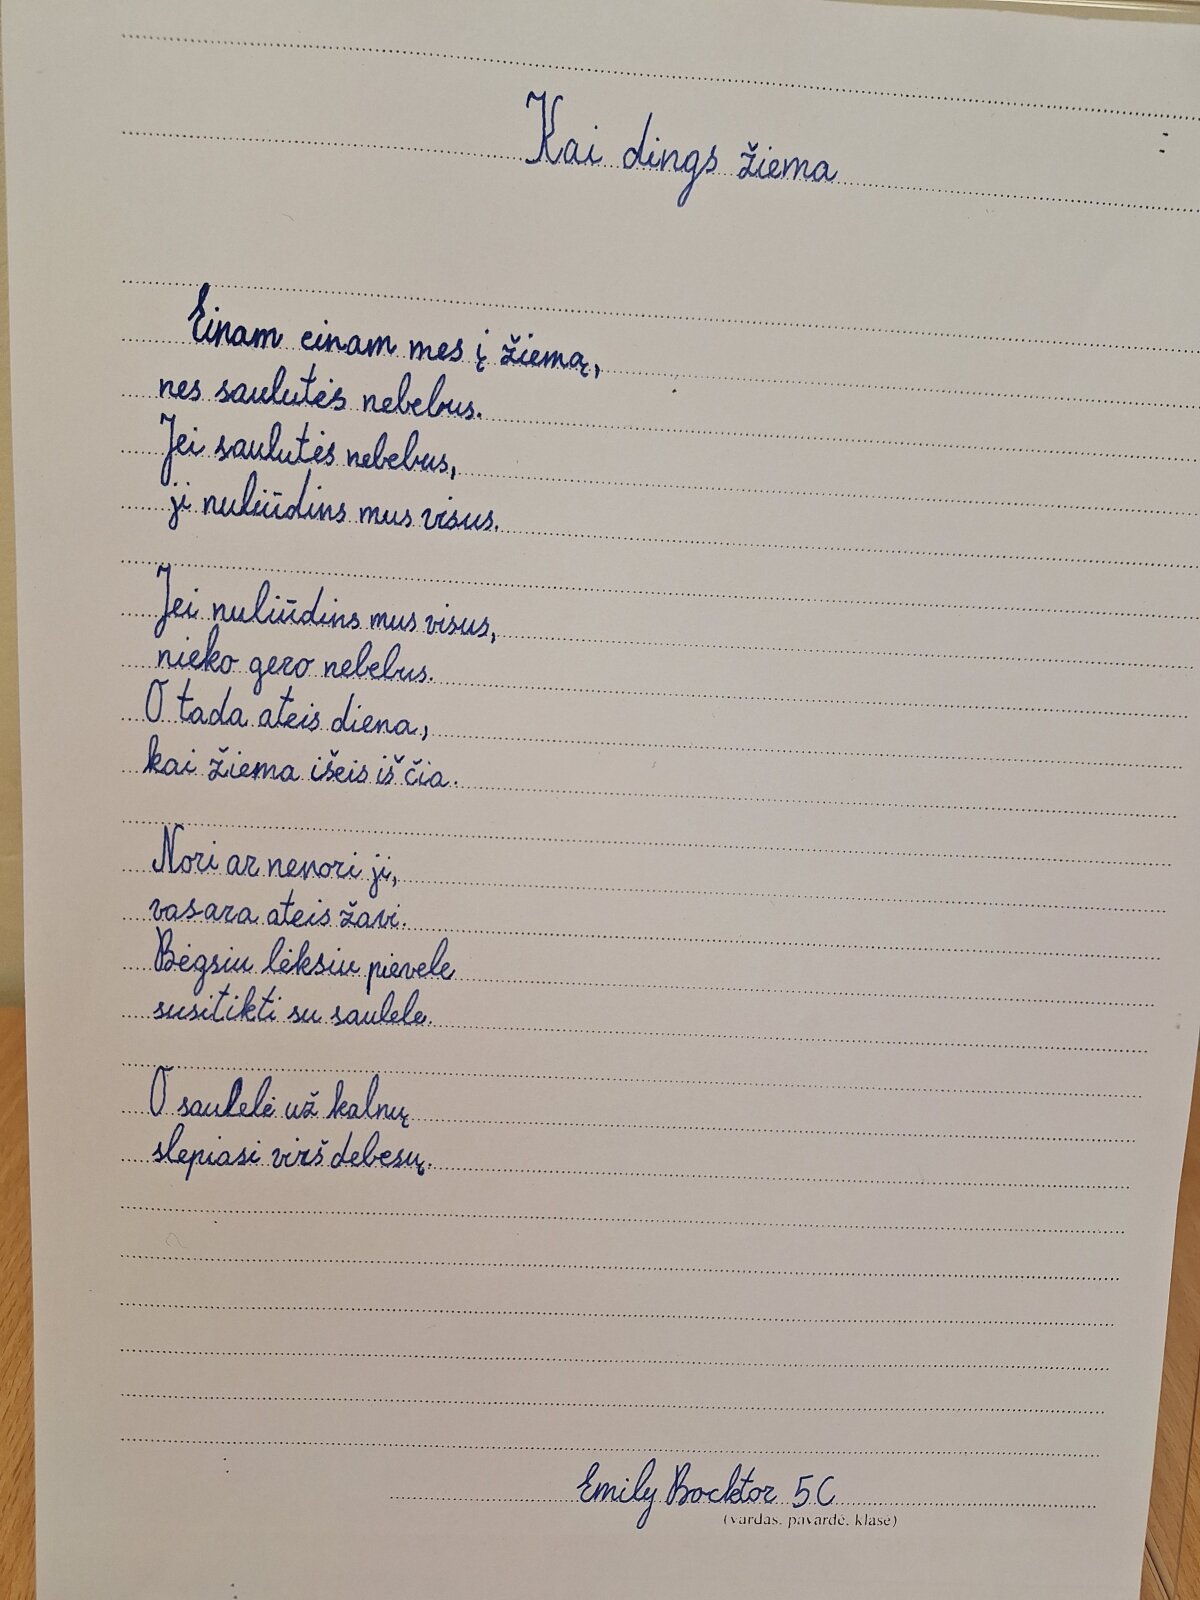 Kai dings žiema
Einam einam mes į žiemą,
nes saulutės nebebus.
Jei saulutės nebebus,
ji nuliūdins mus visus.
Jei nuliūdins mus visus,
nieko gero nebebus.
O tada ateis diena,
kai žiema išeis iš čia.
Nori ar nenori ji,
vasara ateis žavi.
Bėgsiu lėksiu pievele
susitikti su saulele.
O saulelė už kalnų
slepiasi virš debesų.
Emily Bocktor 5C
(vardas, pavardė, klasė)